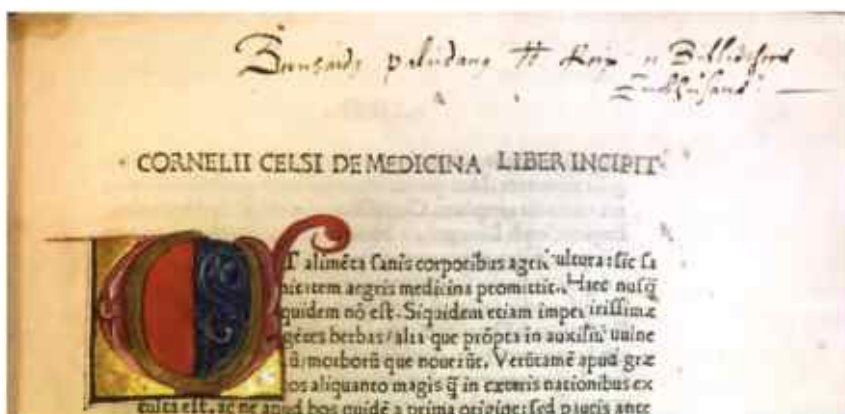 paludanus
CORNELII CELSI DE MEDICINA LIBER INCIPIT
T alimēta sanis corporibus agricultura: sic sa
nitatem aegris medicina promittit. Haec nusq̄
quidem nō est. Siquidem etiam imperitissimæ
gētes herbas/alia que prōpta in auxiliū uulne
rū/morborū que nouerūt. Verūtamē apud græ
cos aliquanto magis q̄ in cæteris nationibus ex
culta est. ac ne apud hos quidē a prima origine: sed paucis ante